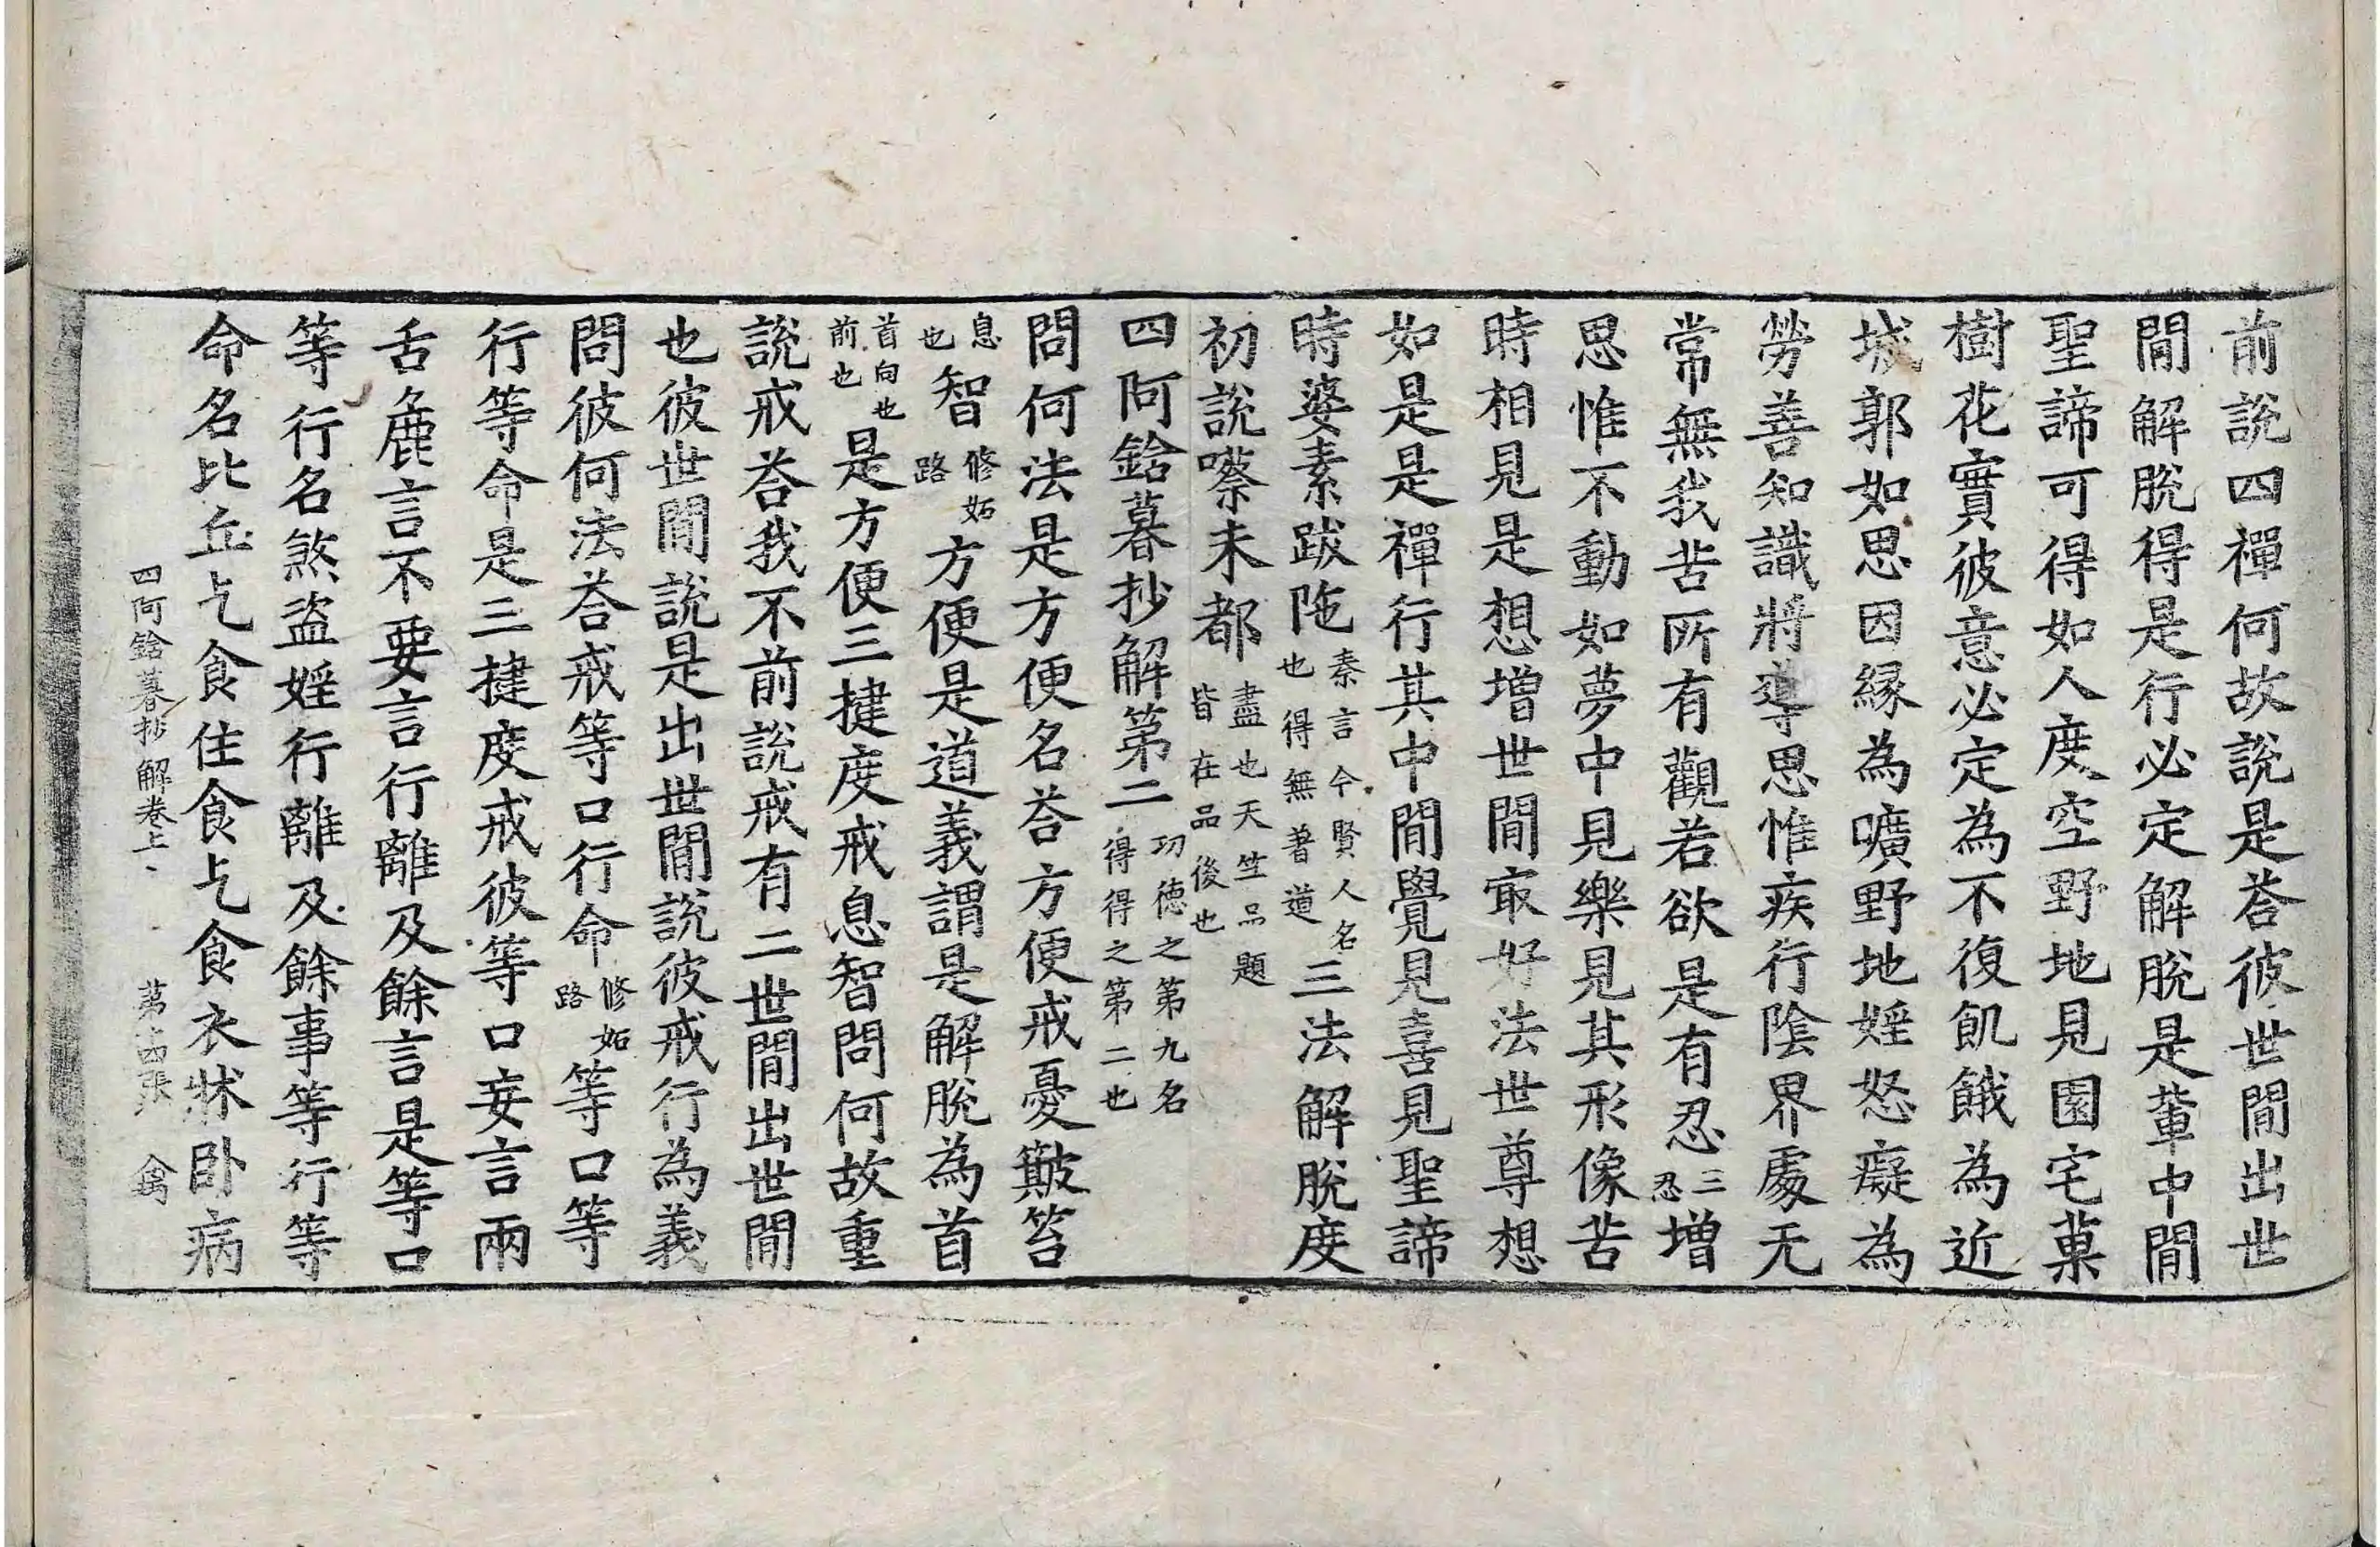 前說四禪何故說是荅彼世間出世
間解脫得是行必定解脫是輩中間
聖諦可得如人度空野地見園宅菓
樹花實彼意必定為不復飢餓為近
城郭如思因緣為曠野地婬怒癡為
勞善知識將導思惟疾行陰界處无
常無我苦所有觀若欲是有忍三忍增
思惟不動如夢中見樂見其形像苦
時相見是想增世間㝡好法世尊想
如是是禪行其中間覺見喜見聖諦
時婆素跋陁秦言今賢人名也得無著道三法解脫度
初說㘔未都盡也天竺品題皆在品後也
四阿鋡暮抄解第二功德之第九名得得之第二也
問何法是方便名荅方便戒憂㿑笞
息也智修妬路方便是道義謂是解脫為首
首向也前也是方便三揵度戒息智問何故重
說戒荅我不前說戒有二世間出世間
也彼世間說是出世間說彼戒行為義
問彼何法荅戒等口行命修妬路等口等
行等命是三揵度戒彼等口妄言兩
舌麁言不要言行離及餘言是等口
等行名煞盜婬行離及餘事等行等
命名比丘乞食住食乞食衣牀卧病
四阿鋡暮抄解卷上　第十四張　禽